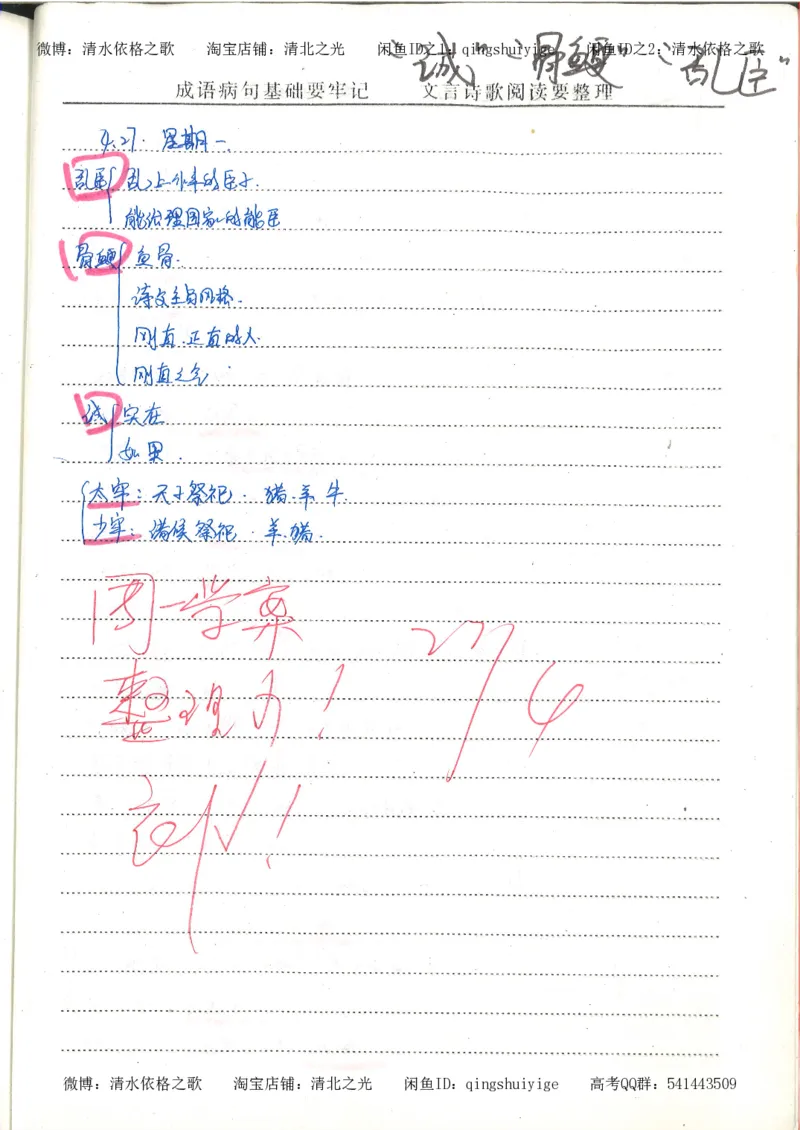 微博：清水依格之歌 淘宝店铺：清北之光 闲鱼ID之1：qingshuiyige 闲鱼ID之2：清水依格之歌
"诚" "骨鲠" "乱臣"
成语病句基础要牢记 文言诗歌阅读要整理
4.27. 星期一.
乱臣 乱上作乱的臣子.
能治理国家的能臣
骨鲠 鱼骨.
诗文的风格.
刚直.正直的人.
刚直之气
诚 实在
如果
太牢：天子祭祀. 猪.羊.牛.
少牢：诸侯祭祀. 羊.猪.
周一学案 27/4
整理办！
微博：清水依格之歌 淘宝店铺：清北之光 闲鱼ID：qingshuiyige 高考QQ群：541443509